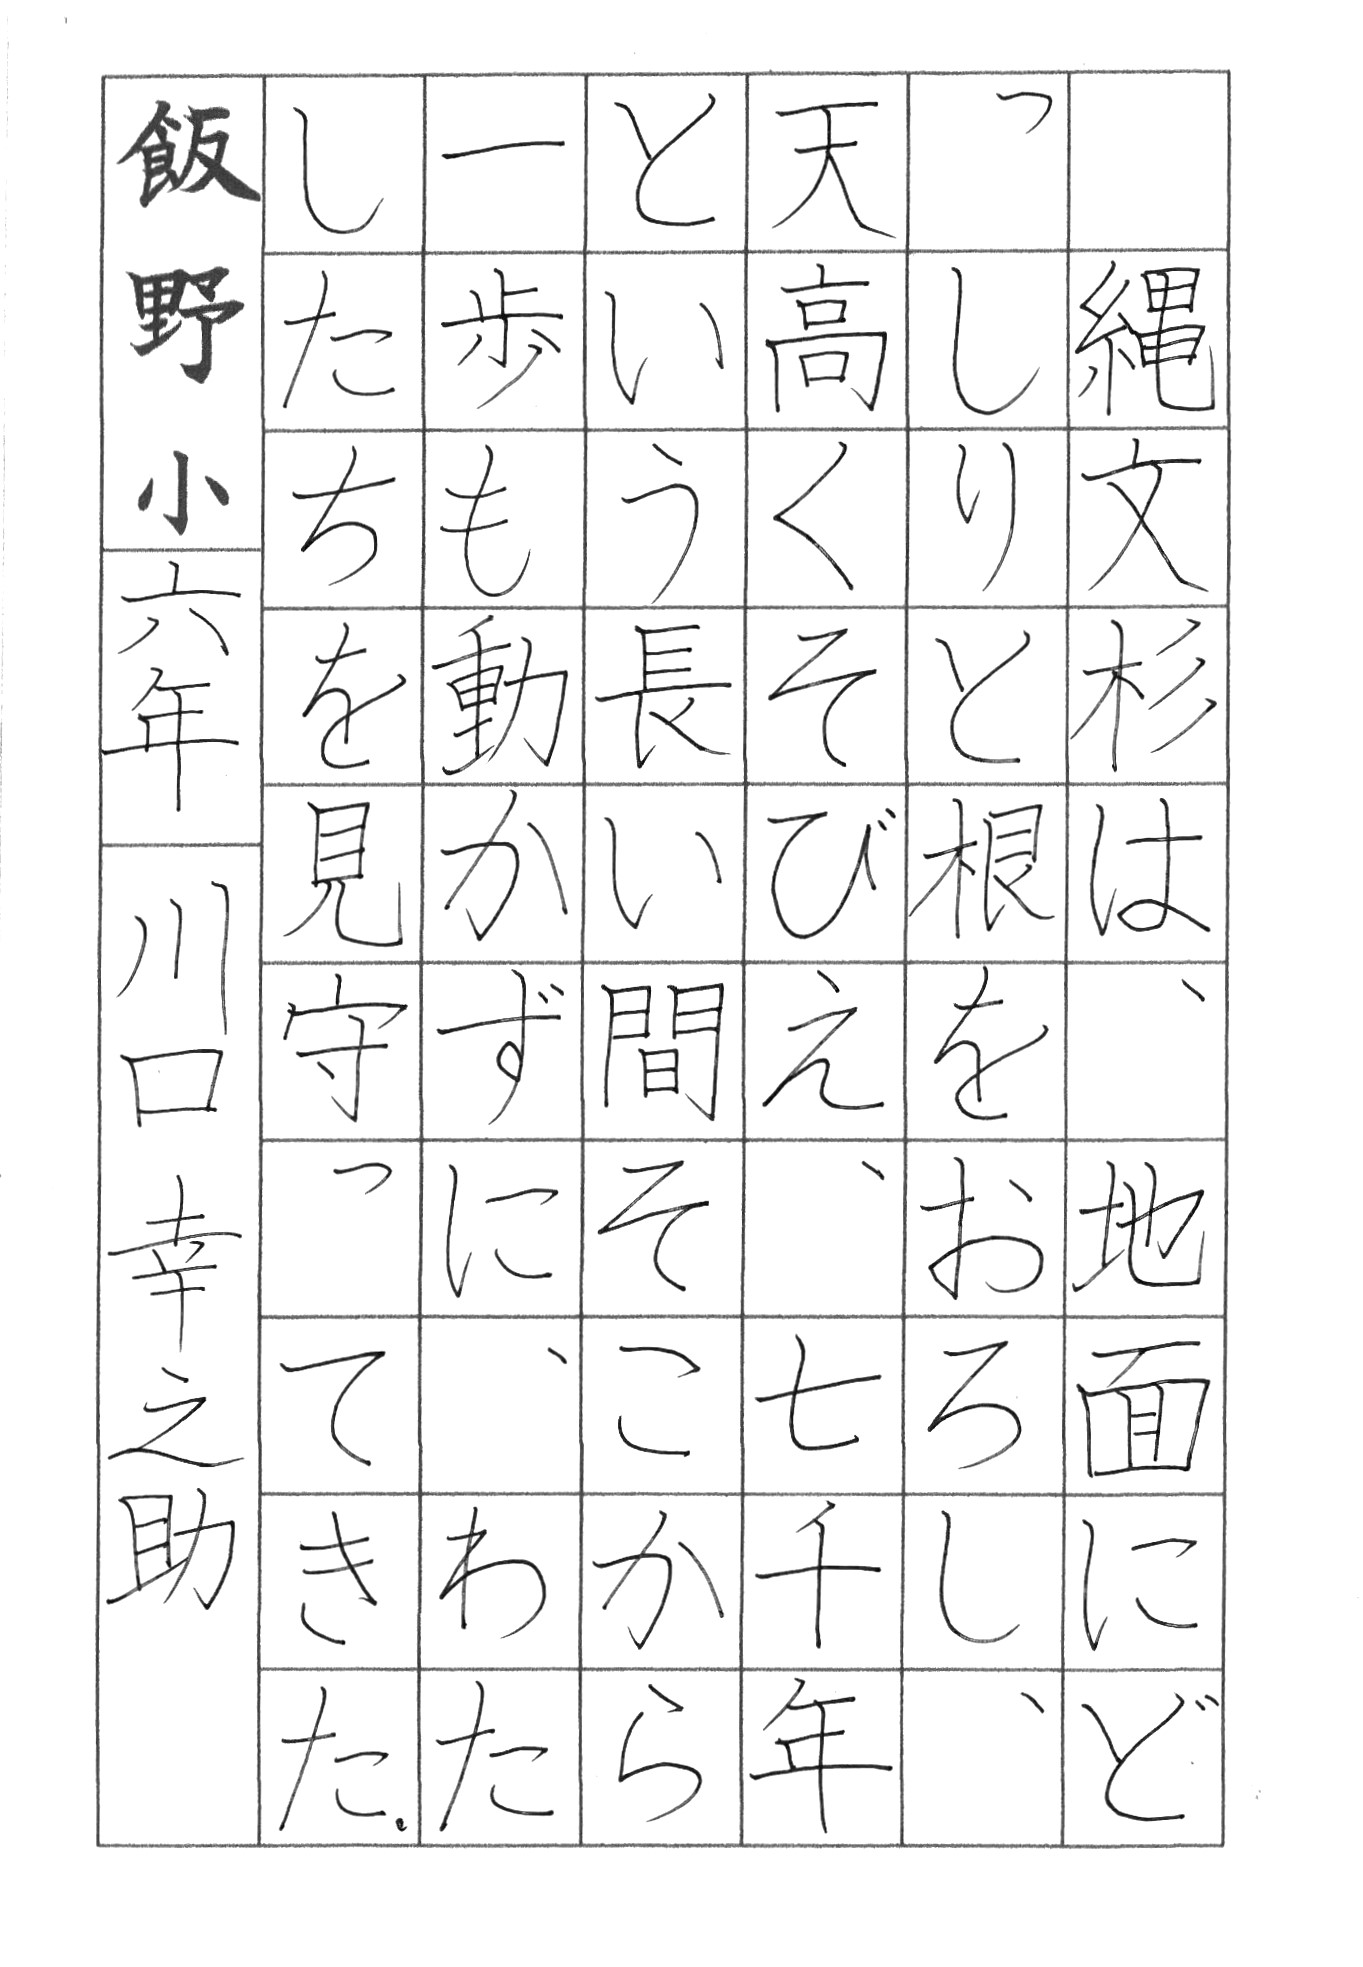 縄文杉は、地面にど
っしりと根をおろし、
天高くそびえ、七千年
という長い間そこから
一歩も動かずに、わた
したちを見守ってきた。
飯野小六年 川口幸之助